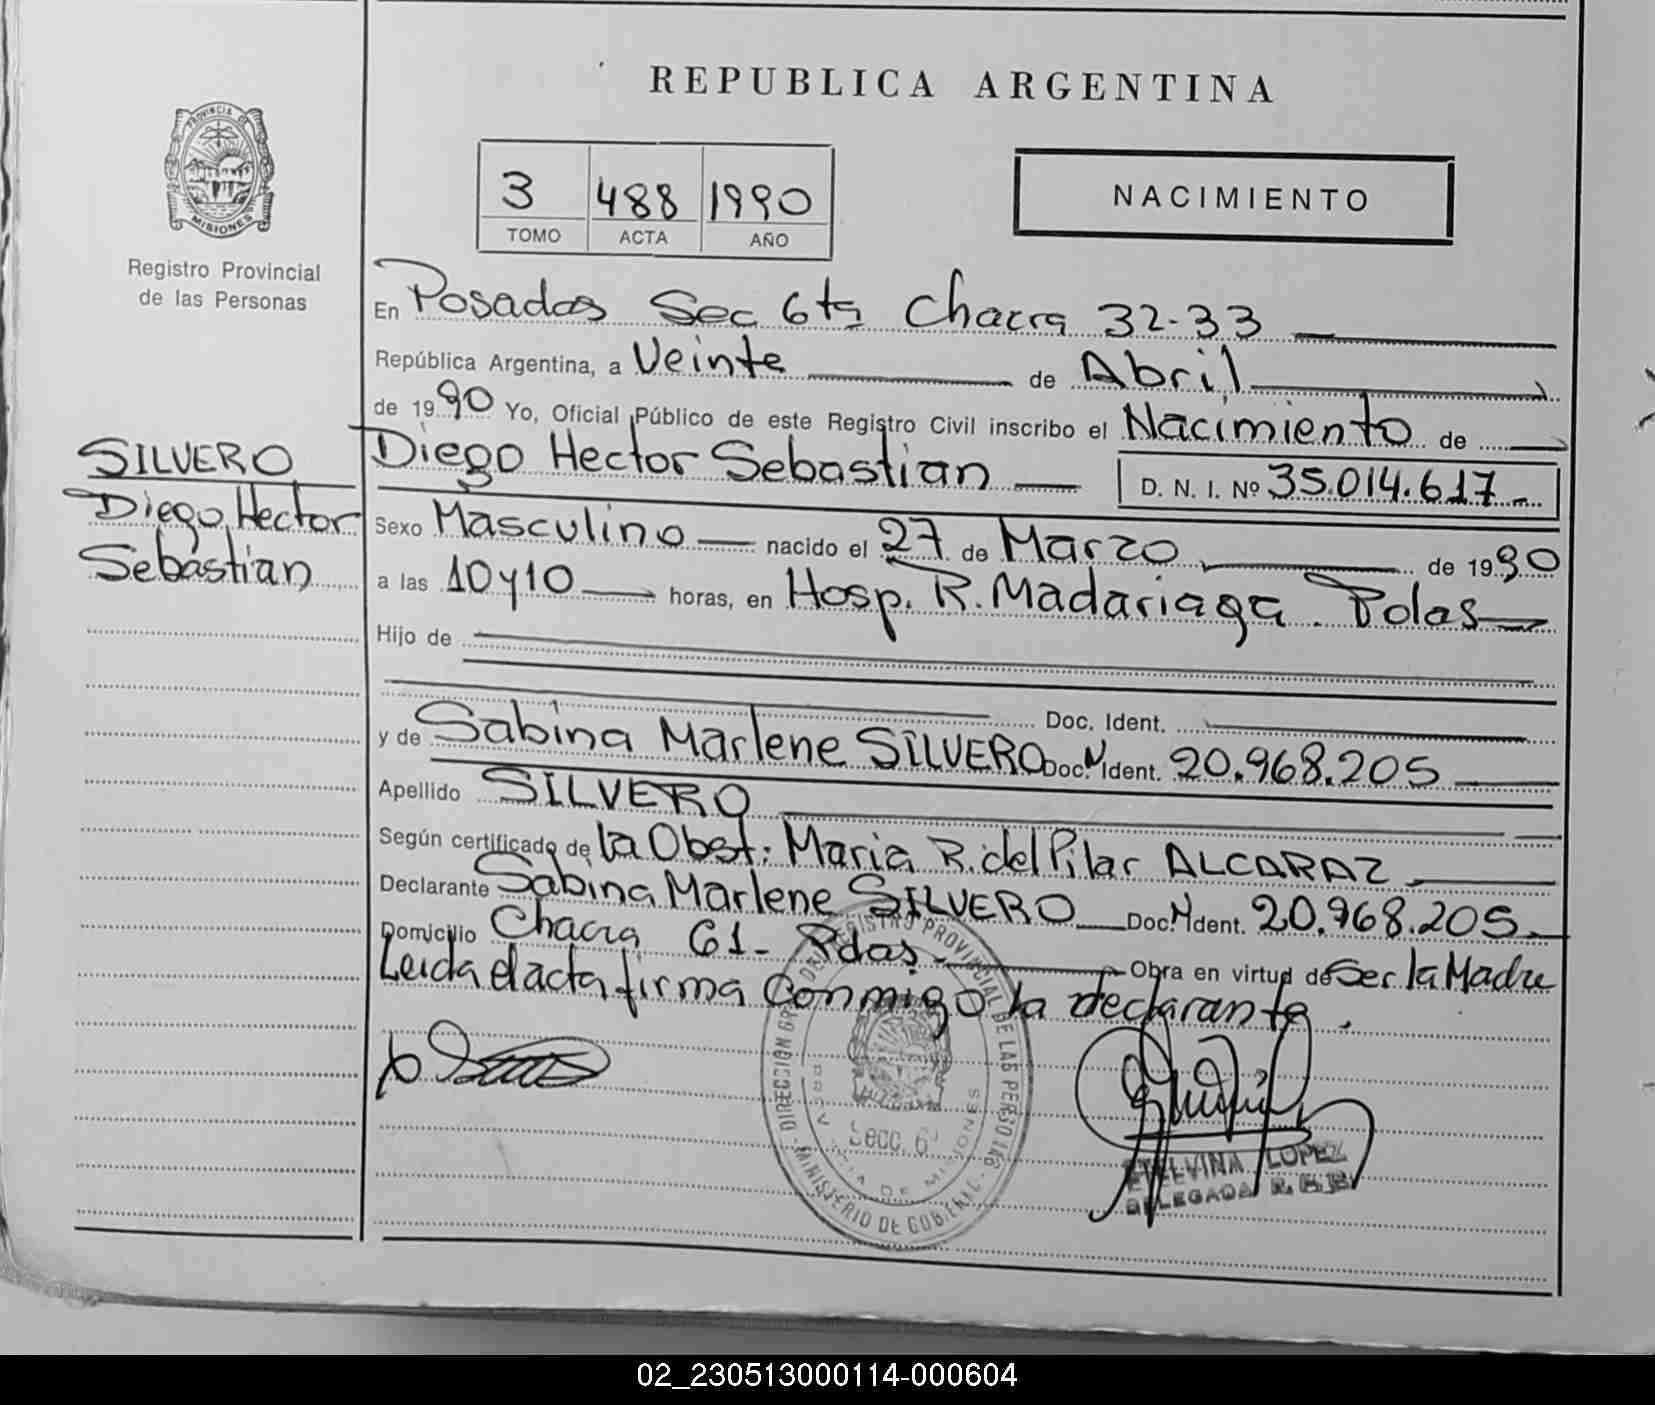 REPUBLICA ARGENTINA
PROVINCIA DE MISIONES
Registro Provincial
de las Personas
3 488 1990
TOMO ACTA AÑO
NACIMIENTO
En Posadas Sec 6ta Chacra 32-33
República Argentina, a Veinte de Abril
de 1990 Yo, Oficial Público de este Registro Civil inscribo el Nacimiento de
SILVERO
Diego Hector
Sebastian
Diego Hector Sebastian D. N. I. Nº 35.014.617
Sexo Masculino nacido el 27 de Marzo de 1990
a las 10 y 10 horas, en Hosp. R. Madariaga. Pdas
Hijo de
Doc. Ident.
y de Sabina Marlene SILVERO Doc. Ident. N 20.968.205
Apellido SILVERO
Según certificado de la Obst: Maria R. del Pilar ALCARAZ
Declarante Sabina Marlene SILVERO Doc. N Ident. 20.968.205
Domicilio Chacra 61- Pdas. Obra en virtud de Ser la Madre
Leida el acta firma conmigo la declarante.
DIRECCION GRAL. DEL REGISTRO PROVINCIAL DE LAS PERSONAS
MINISTERIO DE GOBIERNO
PROVINCIA DE MISIONES
Secc. 6
ETELVINA LOPEZ
DELEGADA
02_230513000114-000604